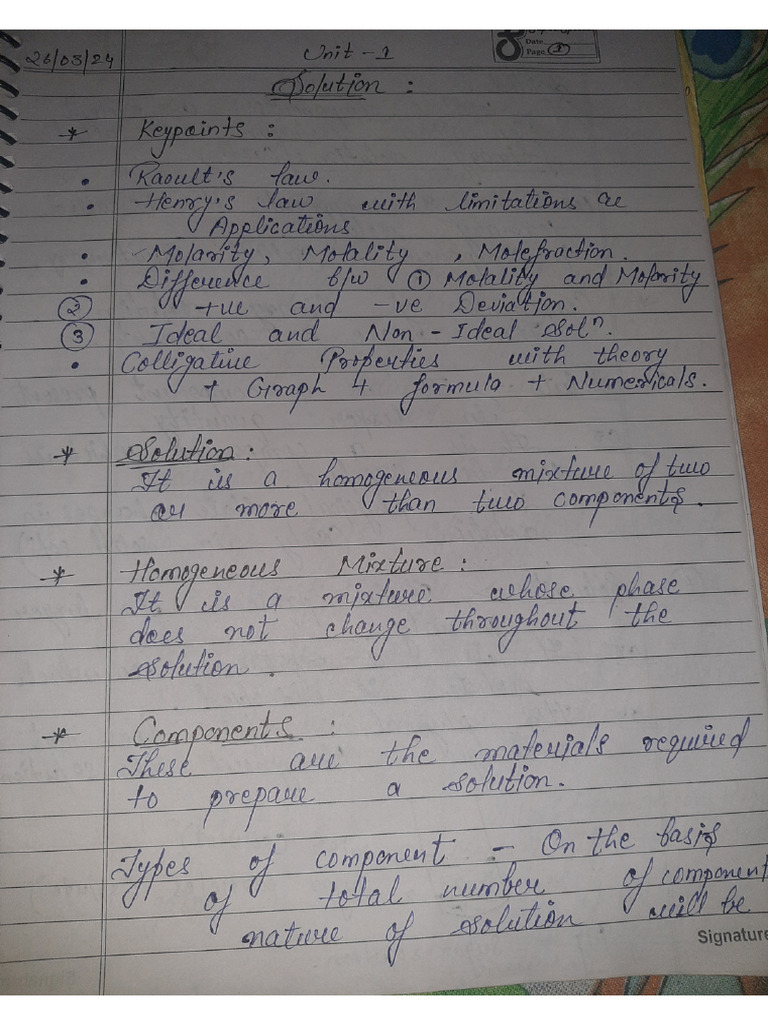 Date
Page 1
26/03/24
Unit - 1
Solution :
* Keypoints :
• Raoult's law.
• Henry's law with limitations ae
Applications
• Molarity, Molality , Molefraction.
• Difference b/w ① Molality and Molarity
② +ve and -ve Deviation.
③ Ideal and Non - Ideal Solⁿ.
• Colligative Properties with theory
+ Graph + formula + Numericals.
* Solution :
It is a homogeneous mixture of two
or more than two components.
* Homogeneous Mixture :
It is a mixture whose phase
does not change throughout the
solution .
* Components :
These are the materials required
to prepare a solution.
Types of component :- On the basis
of total number of component
nature of solution will be
Signature